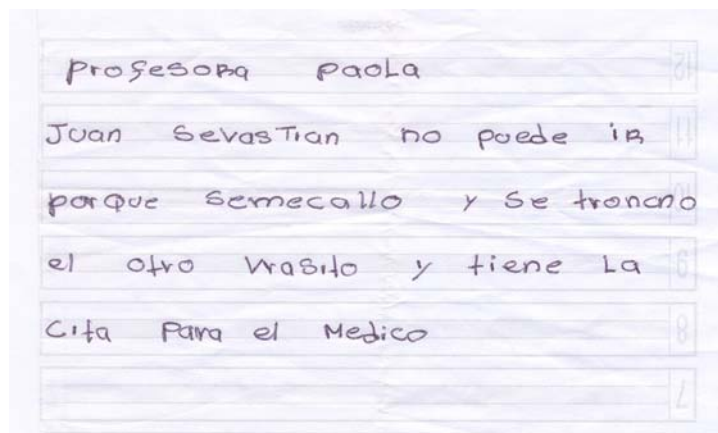 Profesora Paola
Juan Sevastian no puede ir
porque semecallo y se troncho
el otro vrasito y tiene La
Cita Para el Medico
12
11
10
9
8
7